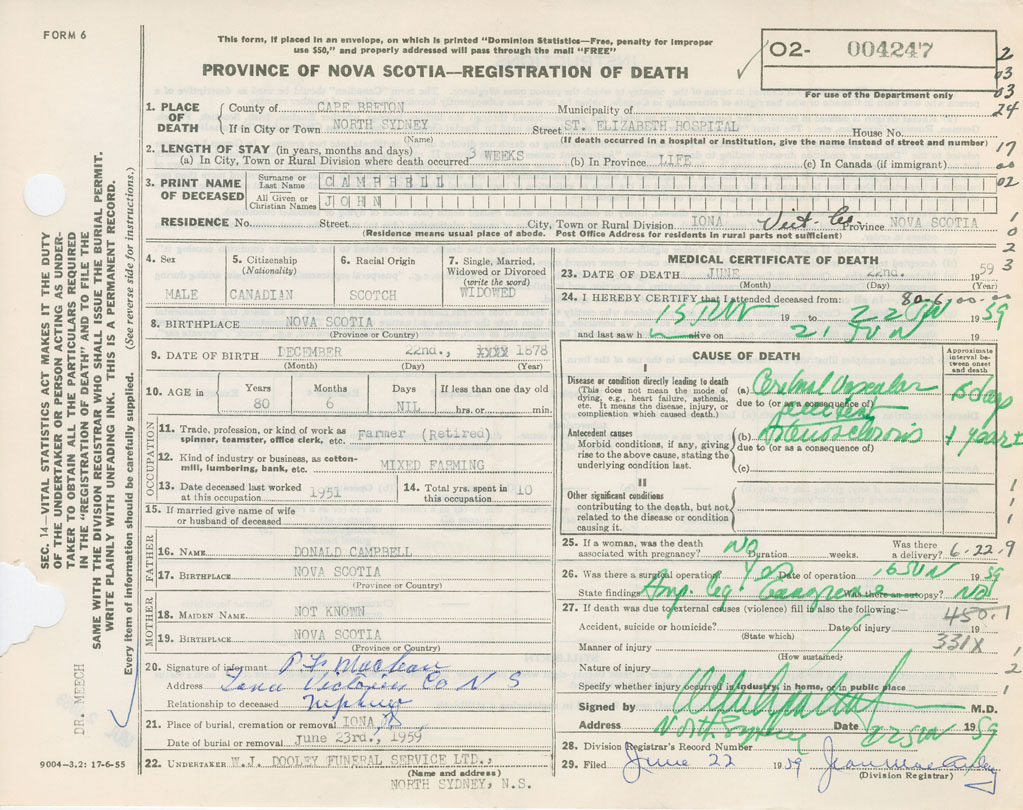 FORM 6
This form, if placed in an envelope, on which is printed "Dominion Statistics—Free, penalty for improper
use $50," and properly addressed will pass through the mail "FREE"
PROVINCE OF NOVA SCOTIA—REGISTRATION OF DEATH
O2- 004247
For use of the Department only
2
03
03
24
17
00
02
1
0
2
3
1. PLACE OF DEATH
County of CAPE BRETON Municipality of
If in City or Town NORTH SYDNEY Street ST. ELIZABETH HOSPITAL House No.
(Name) (If death occurred in a hospital or institution, give the name instead of street and number)
2. LENGTH OF STAY (in years, months and days)
(a) In City, Town or Rural Division where death occurred 3 WEEKS (b) In Province LIFE (c) In Canada (if immigrant)
3. PRINT NAME OF DECEASED
Surname or Last Name CAMPBELL
All Given or Christian Names JOHN
RESIDENCE No. Street City, Town or Rural Division IONA Vict. Co Province NOVA SCOTIA
(Residence means usual place of abode. Post Office Address for residents in rural parts not sufficient)
4. Sex
MALE
5. Citizenship
(Nationality)
CANADIAN
6. Racial Origin
SCOTCH
7. Single, Married,
Widowed or Divorced
(write the word)
WIDOWED
8. BIRTHPLACE NOVA SCOTIA
(Province or Country)
9. DATE OF BIRTH DECEMBER 22nd., XXXX 1878
(Month) (Day) (Year)
10. AGE in
Years Months Days If less than one day old
80 6 NIL hrs. or min.
OCCUPATION
11. Trade, profession, or kind of work as
spinner, teamster, office clerk, etc. Farmer (Retired)
12. Kind of industry or business, as cotton-
mill, lumbering, bank, etc. MIXED FARMING
13. Date deceased last worked
at this occupation 1951
14. Total yrs. spent in
this occupation 10
15. If married give name of wife
or husband of deceased
FATHER
16. NAME DONALD CAMPBELL
17. BIRTHPLACE NOVA SCOTIA
(Province or Country)
MOTHER
18. MAIDEN NAME NOT KNOWN
19. BIRTHPLACE NOVA SCOTIA
(Province or Country)
20. Signature of informant P. F. MacLean
Address Iona Victoria Co N S
Relationship to deceased nephew
21. Place of burial, cremation or removal IONA
Date of burial or removal June 23rd., 1959
22. UNDERTAKER W.J. DOOLEY FUNERAL SERVICE LTD.,
(Name and address)
NORTH SYDNEY, N.S.
MEDICAL CERTIFICATE OF DEATH
23. DATE OF DEATH JUNE 22nd. 1959
(Month) (Day) (Year)
24. I HEREBY CERTIFY that I attended deceased from: 80-6-00-00
15 JUN 19 to 22 JUN 1959
and last saw h alive on 21 JUN 19
CAUSE OF DEATH
Approximate interval between onset and death
I
Disease or condition directly leading to death
(This does not mean the mode of
dying, e.g., heart failure, asthenia,
etc. It means the disease, injury, or
complication which caused death.)
(a) Cerebral Vascular
due to (or as a consequence of)
accident
days
Antecedent causes
Morbid conditions, if any, giving
rise to the above cause, stating the
underlying condition last.
(b) Arteriosclerosis
due to (or as a consequence of)
1 year +
(c)
II
Other significant conditions
contributing to the death, but not
related to the disease or condition
causing it.
1
1
1
25. If a woman, was the death
associated with pregnancy? NO Duration weeks. Was there a delivery? 6-22-9
26. Was there a surgical operation? Yes Date of operation 16 JUN 1959
State findings Amp. leg. Gangrene Was there an autopsy? NO
27. If death was due to external causes (violence) fill in also the following:—
450.1
Accident, suicide or homicide? Date of injury 19
(State which)
331X
Manner of injury
(How sustained)
Nature of injury
1
2
Specify whether injury occurred in industry, in home, or in public place
1
Signed by M.D.
Address North Sydney Date 22 JUN 1959
28. Division Registrar's Record Number
29. Filed June 22 1959
(Division Registrar)
SEC. 14—VITAL STATISTICS ACT MAKES IT THE DUTY
OF THE UNDERTAKER OR PERSON ACTING AS UNDER-
TAKER TO OBTAIN ALL THE PARTICULARS REQUIRED
IN THE "REGISTRATION OF DEATH" AND TO FILE THE
SAME WITH THE DIVISION REGISTRAR WHO SHALL ISSUE THE BURIAL PERMIT.
WRITE PLAINLY WITH UNFADING INK. THIS IS A PERMANENT RECORD.
Every item of information should be carefully supplied. (See reverse side for instructions.)
DR. MEECH
9004-3.2: 17-6-55